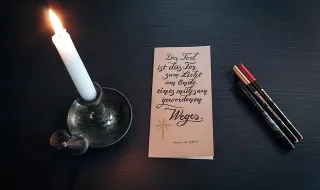 Der Tod
ist das Tor
zum Licht
am Ende
eines mühsam
gewordenen
Weges.